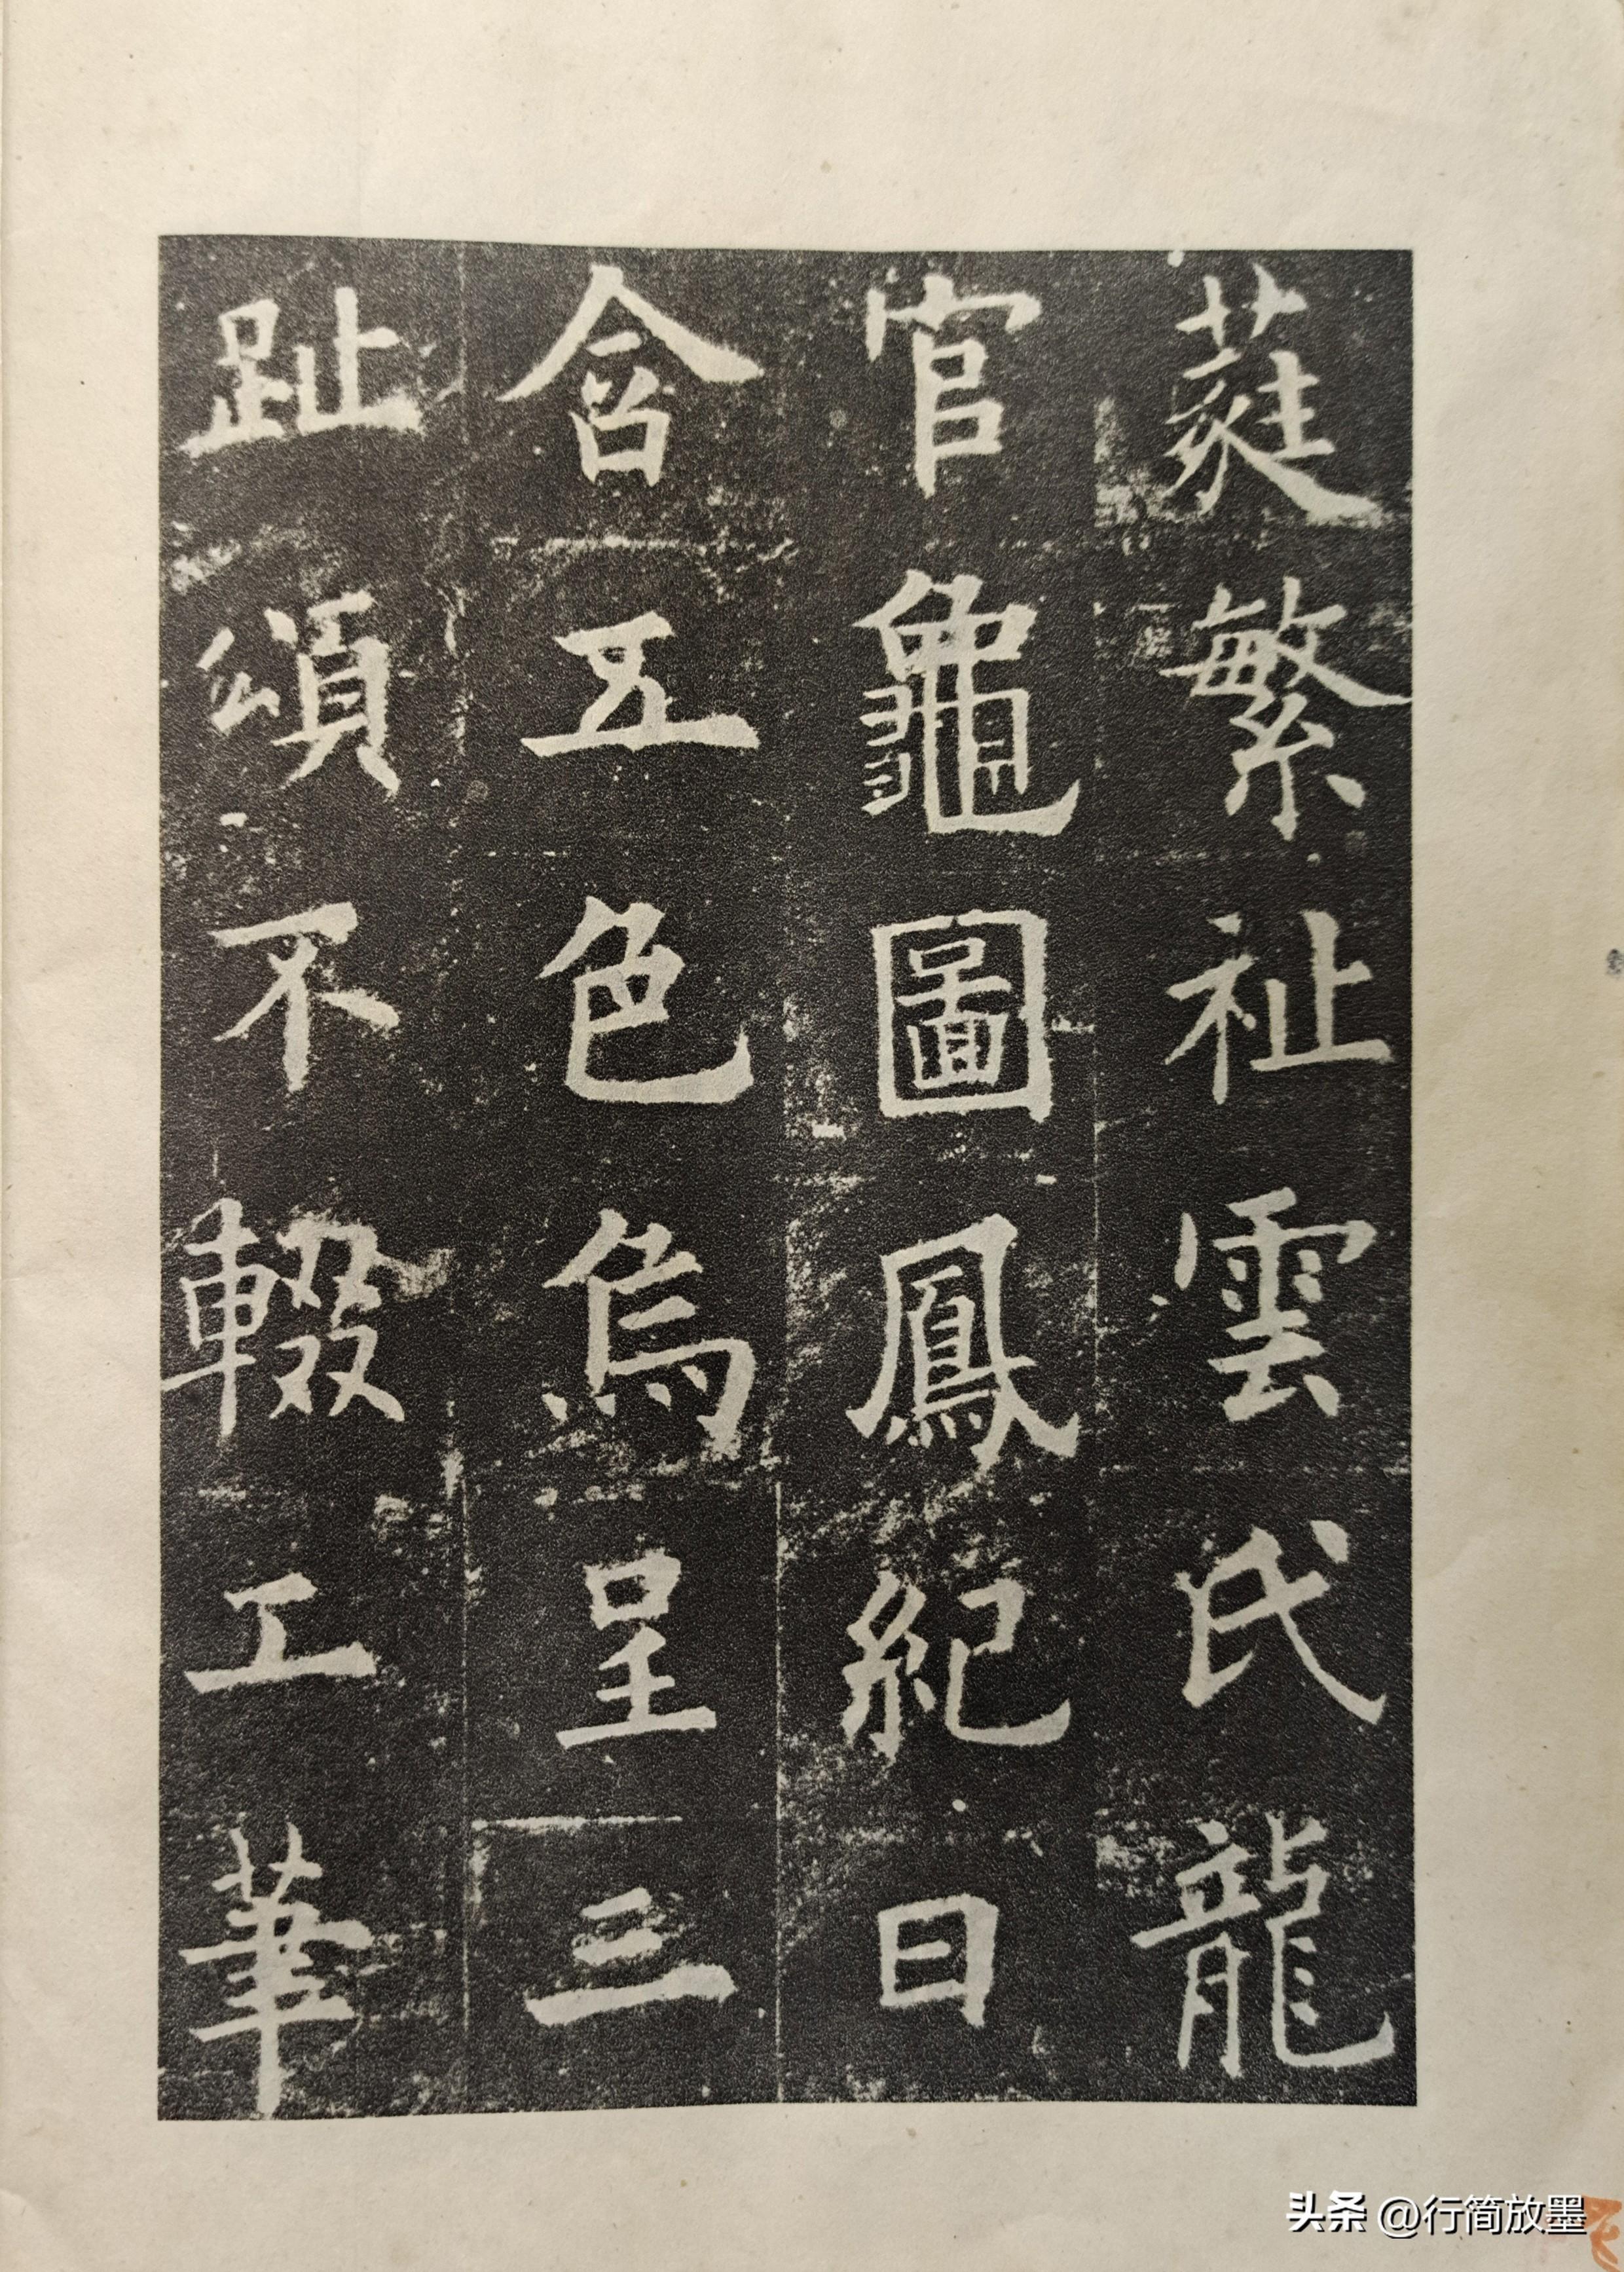 蕤繁祉雲氏龍
官龜圖鳳紀日
含五色烏呈三
趾頌不輟工筆
头条 @行简放墨